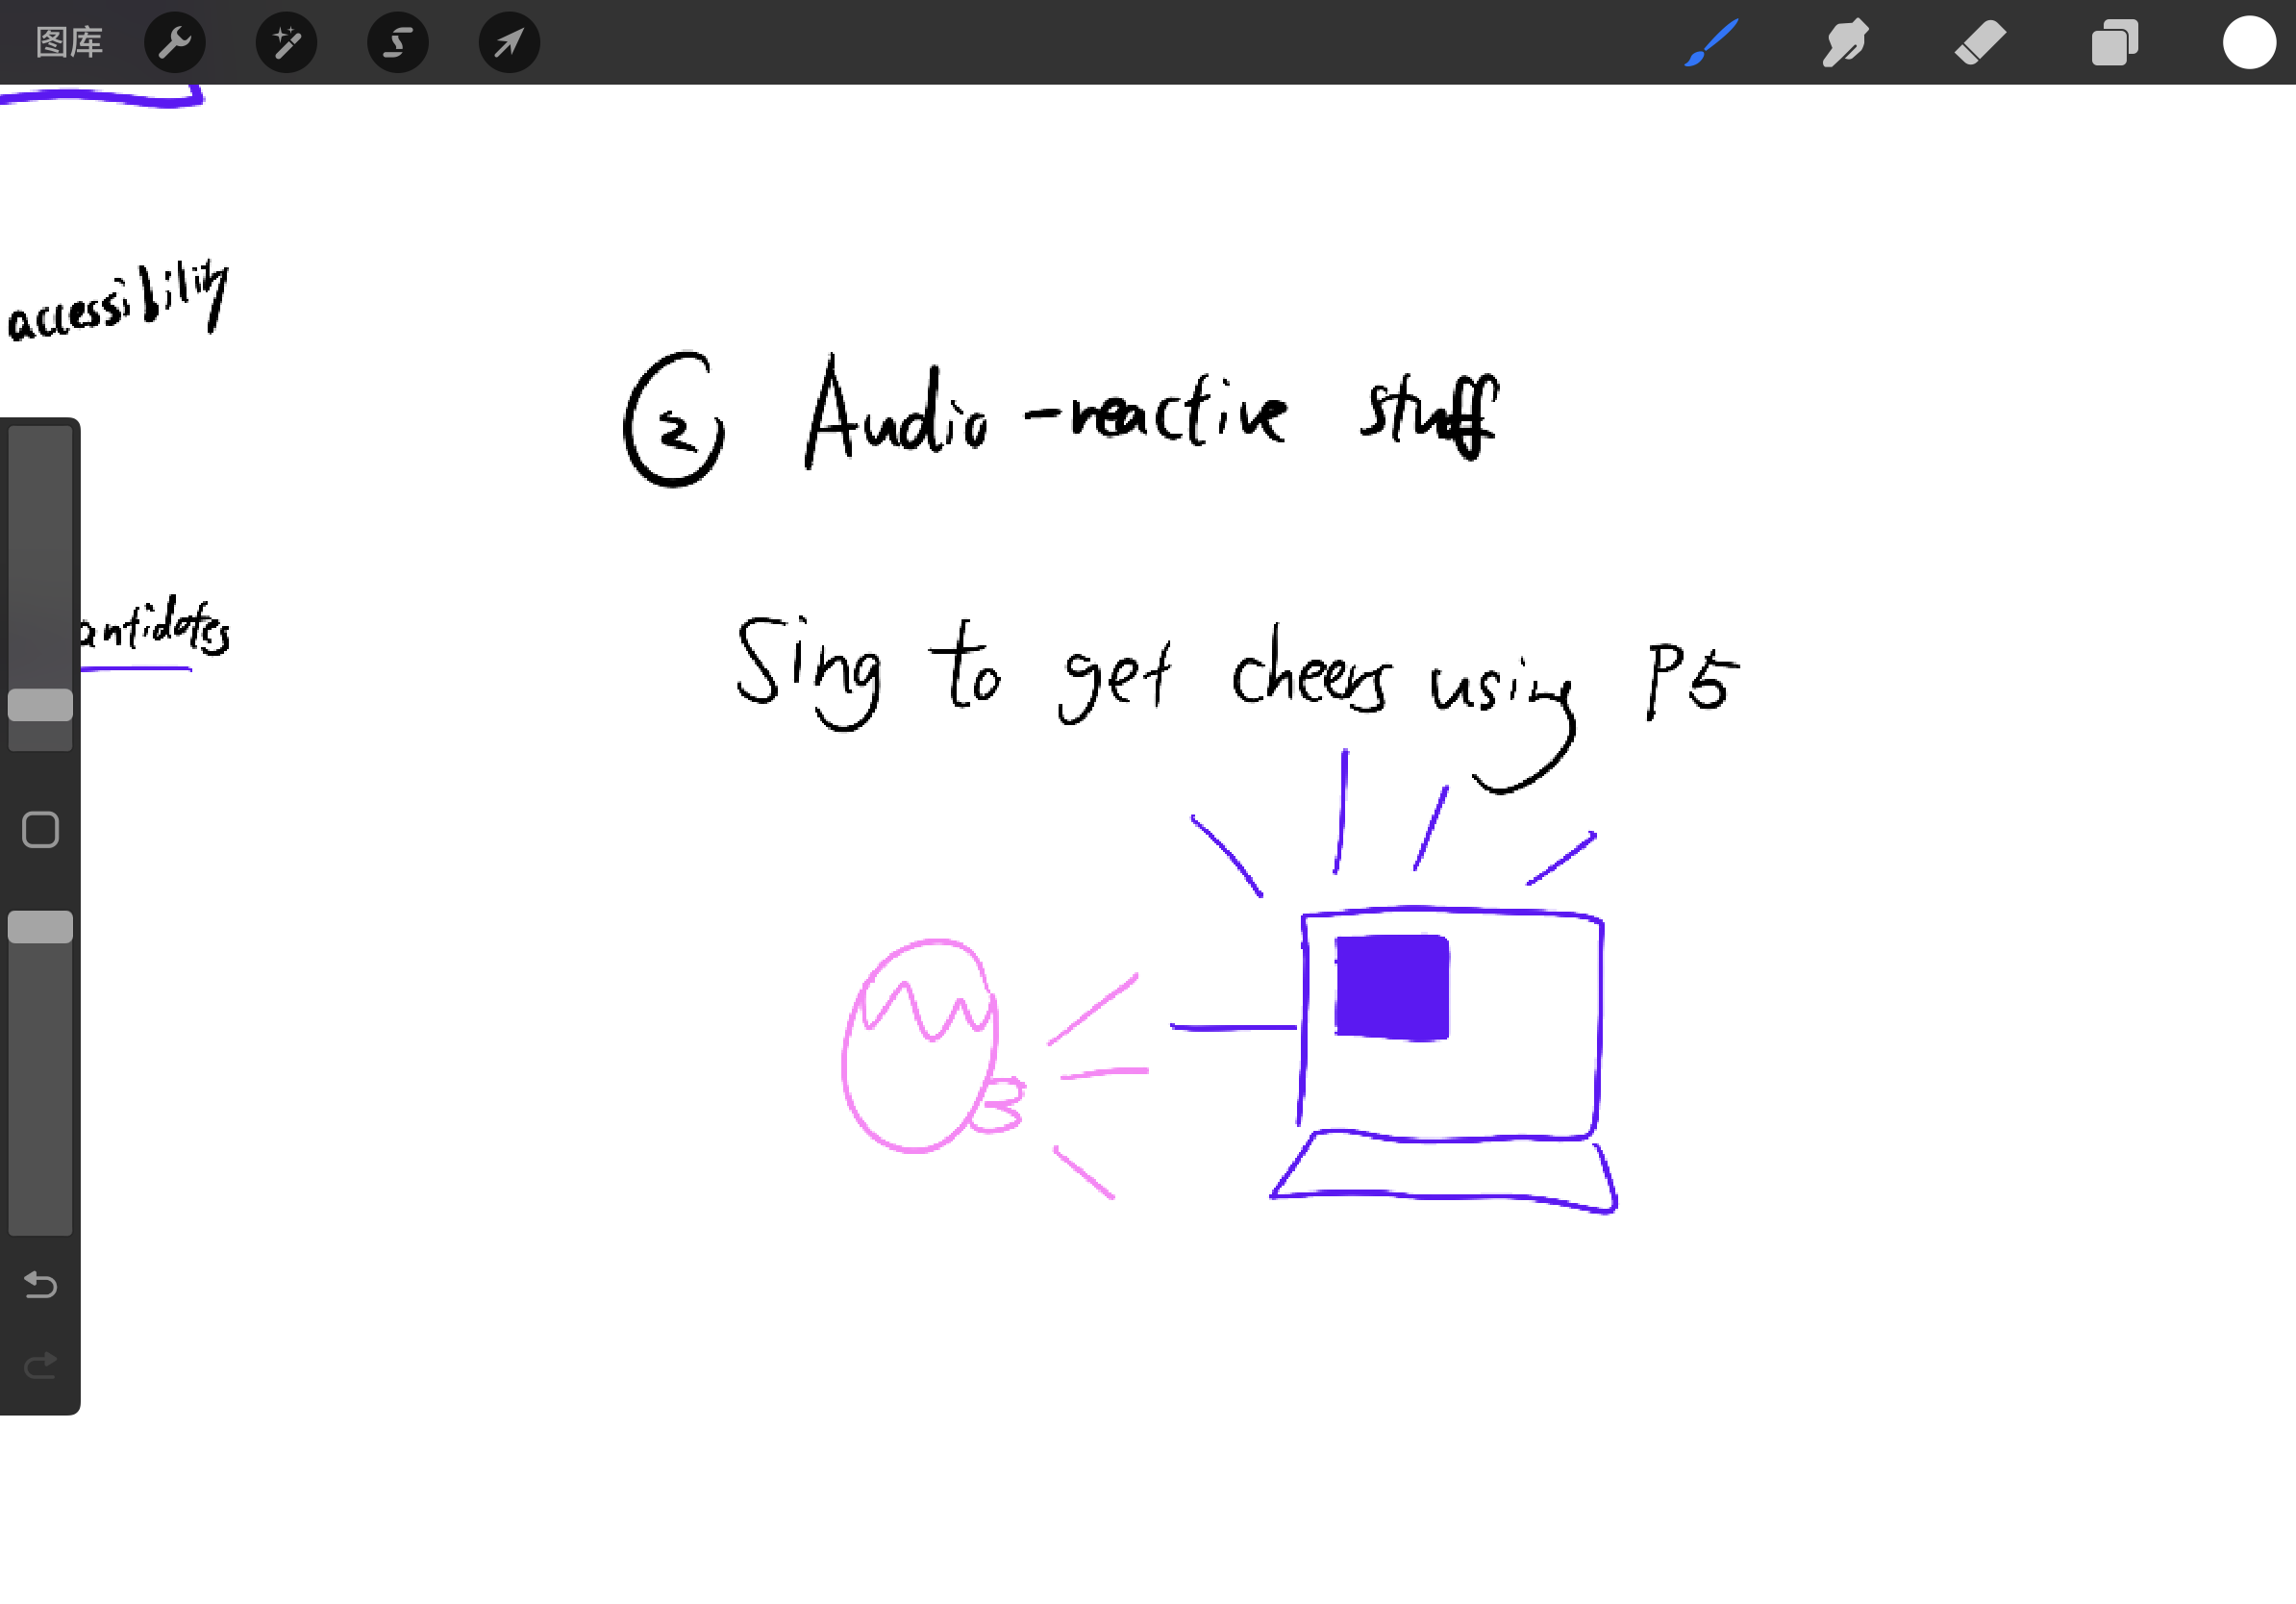 图库
accessibility
② Audio-reactive stuff
Sing to get cheers using P5